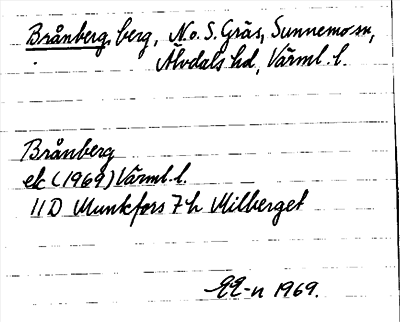 Brånberg, berg, N. o. S. Gräs, Sunnemo sn,
Älvdals hd, Värml. l.
Brånberg
ek (1969) Värml. l.
11D Munkfors 7h Milberget
1969.